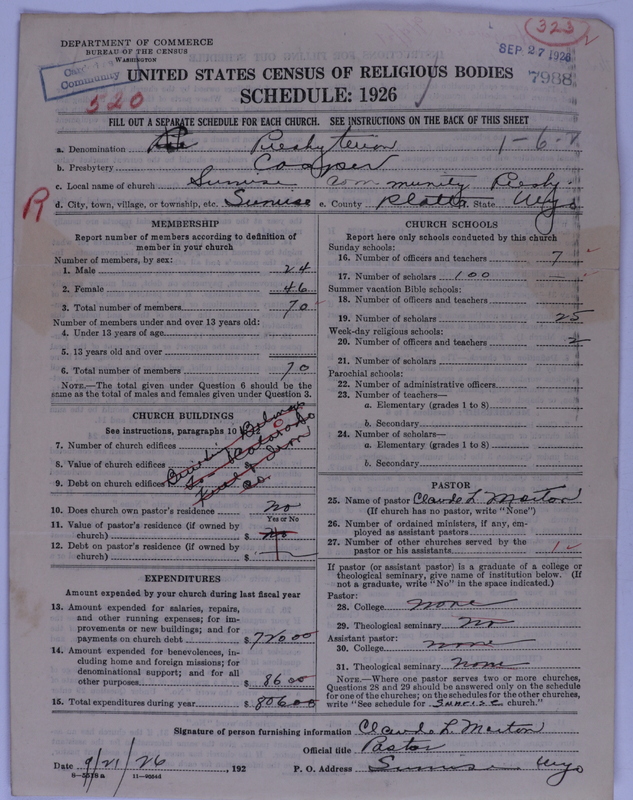 323
DEPARTMENT OF COMMERCE
BUREAU OF THE CENSUS
WASHINGTON
SEP 27 1926
Community
7988
UNITED STATES CENSUS OF RELIGIOUS BODIES
520
SCHEDULE: 1926
FILL OUT A SEPARATE SCHEDULE FOR EACH CHURCH. SEE INSTRUCTIONS ON THE BACK OF THIS SHEET
a. Denomination Presbyterian 1-6-
b. Presbytery Casper
c. Local name of church Sunrise Community Presby.
R
d. City, town, village, or township, etc. Sunrise e. County Platte State Wyo
MEMBERSHIP
Report number of members according to definition of member in your church
Number of members, by sex:
1. Male 24
2. Female 46
3. Total number of members 70
Number of members under and over 13 years old:
4. Under 13 years of age
5. 13 years old and over
6. Total number of members 70
NOTE.—The total given under Question 6 should be the same as the total of males and females given under Question 3.
CHURCH BUILDINGS
See instructions, paragraphs 10
7. Number of church edifices 0
8. Value of church edifices $
9. Debt on church edifices
Building Belongs
to Colorado
Fuel & Iron
Co.
10. Does church own pastor's residence No
Yes or No
11. Value of pastor's residence (if owned by church) $ No
12. Debt on pastor's residence (if owned by church) $
EXPENDITURES
Amount expended by your church during last fiscal year
13. Amount expended for salaries, repairs, and other running expenses; for improvements or new buildings; and for payments on church debt $ 720.00
14. Amount expended for benevolences, including home and foreign missions; for denominational support; and for all other purposes $ 86.00
15. Total expenditures during year $ 806.00
CHURCH SCHOOLS
Report here only schools conducted by this church
Sunday schools:
16. Number of officers and teachers 7
17. Number of scholars 100
Summer vacation Bible schools:
18. Number of officers and teachers
19. Number of scholars 25
Week-day religious schools:
20. Number of officers and teachers 2
21. Number of scholars
Parochial schools:
22. Number of administrative officers
23. Number of teachers—
a. Elementary (grades 1 to 8)
b. Secondary
24. Number of scholars—
a. Elementary (grades 1 to 8)
b. Secondary
PASTOR
25. Name of pastor Claude L. Morton
(If church has no pastor, write "None")
26. Number of ordained ministers, if any, employed as assistant pastors
27. Number of other churches served by the pastor or his assistants 1
If pastor (or assistant pastor) is a graduate of a college or theological seminary, give name of institution below. (If not a graduate, write "No" in the space indicated.)
Pastor:
28. College none
29. Theological seminary No
Assistant pastor:
30. College none
31. Theological seminary none
NOTE.—Where one pastor serves two or more churches, Questions 28 and 29 should be answered only on the schedule for one of the churches; on the schedules for the other churches, write "See schedule for Sunrise church."
Signature of person furnishing information Claude L. Morton
Official title Pastor
Date 9/21/26, 192 P. O. Address Sunrise Wyo
8—5518 a 11—9064d